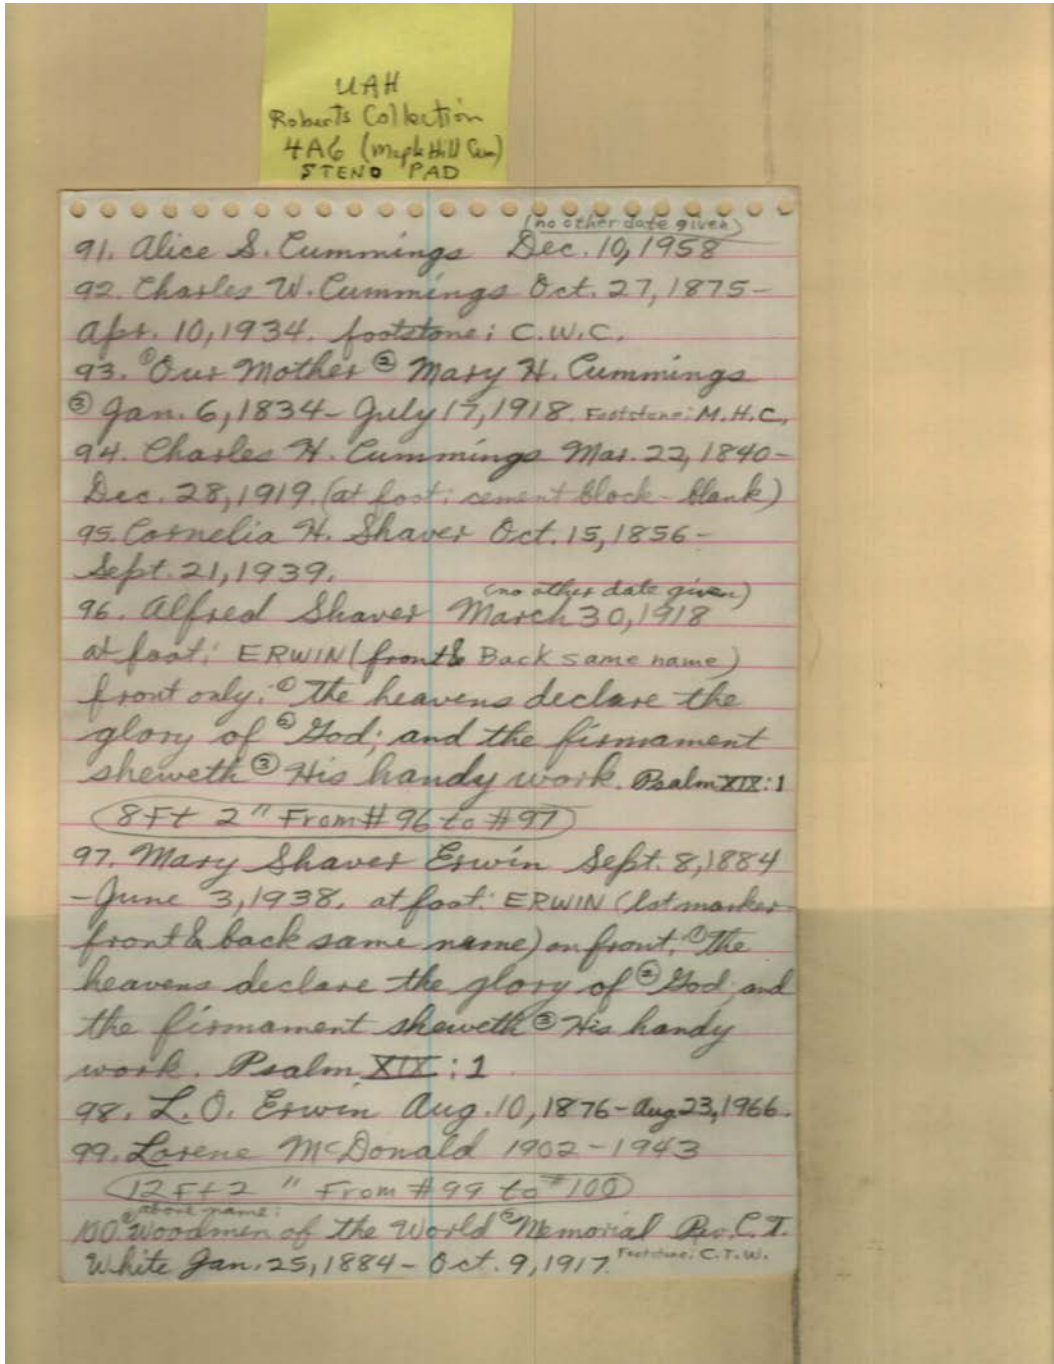 UAH
Roberts Collection
4A6 (Maple Hill Cem)
STENO PAD
(no other date given)
91. Alice S. Cummings Dec. 10, 1958
92. Charles W. Cummings Oct. 27, 1875-
Apr. 10, 1934. footstone: C.W.C.
93. ① Our Mother ② Mary H. Cummings
③ Jan. 6, 1834- July 17, 1918. Footstone: M.H.C.
94. Charles H. Cummings Mar. 22, 1840-
Dec. 28, 1919. (at foot: cement block - blank)
95. Cornelia H. Shaver Oct. 15, 1856-
Sept. 21, 1939.
(no other date given)
96. Alfred Shaver March 30, 1918
at foot: ERWIN (front & Back same name)
front only: ① The heavens declare the
glory of ② God; and the firmament
sheweth ③ His handy work. Psalm XIX:1
8 Ft 2" From # 96 to # 97
97. Mary Shaver Erwin Sept. 8, 1884
- June 3, 1938. at foot: ERWIN (lot marker
front & back same name) on front. ① The
heavens declare the glory of ② God; and
the firmament sheweth ③ His handy
work. Psalm XIX : 1
98. L.O. Erwin Aug. 10, 1876- Aug 23, 1966.
99. Lorene McDonald 1902-1943
12 Ft 2" From # 99 to # 100
above name:
100 ① Woodmen of the World ② Memorial Rev. C.T.
White Jan. 25, 1884- Oct. 9, 1917. Footstone: C.T.W.